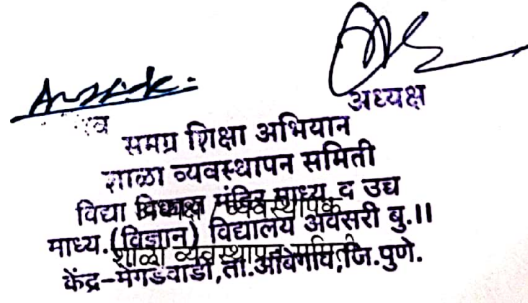 अध्यक्ष
व
समग्र शिक्षा अभियान
शाळा व्यवस्थापन समिती
विद्या विकास मंदिर माध्य. व उच्च
माध्य.(विज्ञान) विद्यालय अवसरी बु.॥
शाळा व्यवस्थापन समिती
केंद्र-मेंगडेवाडी,ता.आंबेगांव,जि.पुणे.